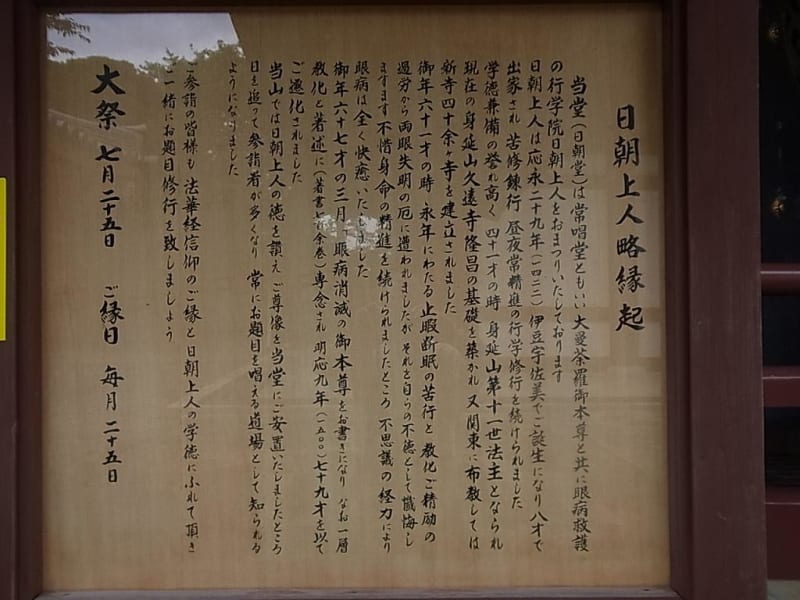 日朝上人略縁起
当堂(日朝堂)は常唱堂ともいい 大曼荼羅御本尊と共に眼病救護
の行学院日朝上人をおまつりいたしております
日朝上人は応永二十九年(一四二二)伊豆宇佐美でご誕生になり 八才で
出家され 苦修錬行 昼夜常精進の行学修行を続けられました
学徳兼備の誉れ高く 四十一才の時 身延山第十一世法主となられ
現在の身延山久遠寺隆昌の基礎を築かれ 又 関東に布教しては
新寺四十余ヶ寺を建立されました
御年六十一才の時 永年にわたる止暇断眠の苦行と教化ご精励の
過労から両眼失明の厄に遭われましたが それを自らの不徳として懺悔し
ますます不惜身命の精進を続けられましたところ 不思議の経力により
眼病は全く快癒いたしました
御年六十七才の三月 「眼病消滅の御本尊をお書きになり なお一層
教化と著述に(著書七 余巻)専念され 明応九年(一五〇〇)七十九才を以て
ご遷化されました
当山では日朝上人の徳を讃え ご尊像を当堂にご安置いたしましたところ
日を追って参詣者が多くなり 常にお題目を唱える道場として知られる
ようになりました
ご参詣の皆様も 法華経信仰のご縁と日朝上人の学徳にふれて頂き
ご一緒にお題目修行を致しましょう
大祭 七月二十五日 ご縁日 毎月二十五日